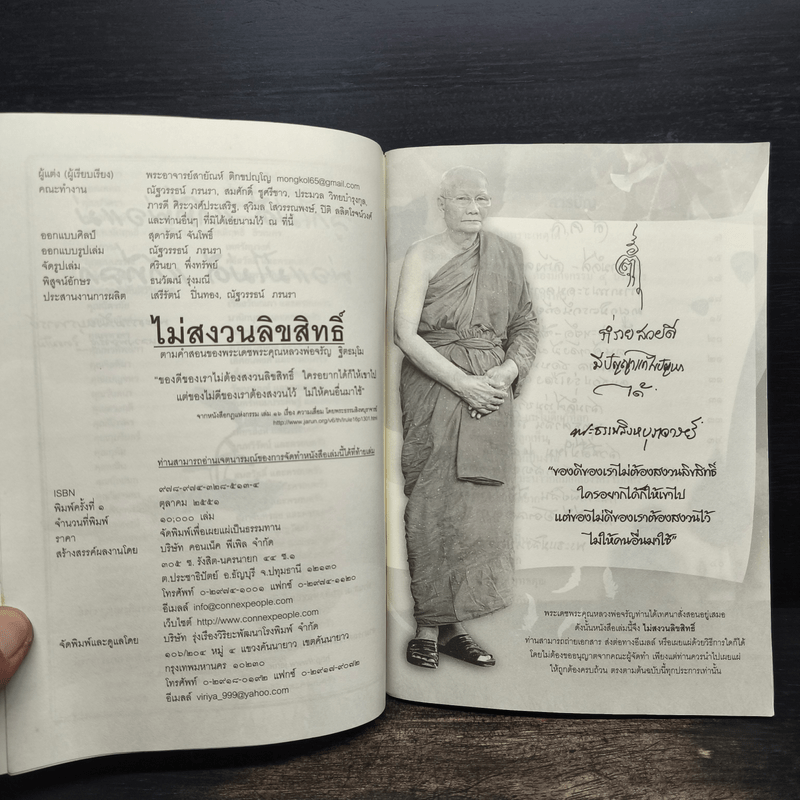 ผู้แต่ง (ผู้เรียบเรียง) พระอาจารย์สายัณห์ ติกขปญฺโญ mongkol65@gmail.com
คณะทำงาน ณัฐวรรธน์ ภรนรา, สมศักดิ์ ชูศรีขาว, ประมวล วิทยบำรุงกุล,
ภารดี ศิระวงศ์ประเสริฐ, สุวิมล โสวรรณพงษ์, ปิติ ลลิตโรจน์วงศ์
และท่านอื่นๆ ที่มิได้เอ่ยนามไว้ ณ ที่นี้
ออกแบบศิลป์ สุดารัตน์ จันโพธิ์
ออกแบบรูปเล่ม ณัฐวรรธน์ ภรนรา
จัดรูปเล่ม ศรินยา พึ่งทรัพย์
พิสูจน์อักษร ธนวัฒน์ รุ่งมณี
ประสานงานการผลิต เสรีรัตน์ ปิ่นทอง, ณัฐวรรธน์ ภรนรา
ไม่สงวนลิขสิทธิ์
ตามคำสอนของพระเดชพระคุณหลวงพ่อจรัญ ฐิตธมฺโม
"ของดีของเราไม่ต้องสงวนลิขสิทธิ์ ใครอยากได้ก็ให้เขาไป
แต่ของไม่ดีของเราต้องสงวนไว้ ไม่ให้คนอื่นมาใช้"
จากหนังสือกฎแห่งกรรม เล่ม ๑๖ เรื่อง ความเสื่อม โดยพระธรรมสิงหบุราจารย์
ท่านสามารถอ่านเจตนารมณ์ของการจัดทำหนังสือเล่มนี้ได้ที่ท้ายเล่ม
ISBN ๙๗๘-๙๗๔-๓๒๘-๕๑๓-๔
พิมพ์ครั้งที่ ๑ ตุลาคม ๒๕๕๑
จำนวนที่พิมพ์ ๑๐,๐๐๐ เล่ม
ราคา จัดพิมพ์เพื่อเผยแผ่เป็นธรรมทาน
สร้างสรรค์ผลงานโดย บริษัท คอนเน็ค พีเพิล จำกัด
๓๐๕ ซ. รังสิต-นครนายก ๔๔ ซ.๑
ต.ประชาธิปัตย์ อ.ธัญบุรี จ.ปทุมธานี ๑๒๑๓๐
โทรศัพท์ ๐-๒๙๗๔-๑๐๐๑ แฟกซ์ ๐-๒๙๗๔-๑๑๒๐
อีเมลล์ info@connexpeople.com
เว็บไซต์ http://www.connexpeople.com
จัดพิมพ์และดูแลโดย บริษัท รุ่งเรืองวิริยะพัฒนาโรงพิมพ์ จำกัด
๑๐๖/๒๐๔ หมู่ ๔ แขวงคันนายาว เขตคันนายาว
กรุงเทพมหานคร ๑๐๒๓๐
โทรศัพท์ ๐-๒๙๑๘-๐๑๙๒ แฟกซ์ ๐-๒๙๑๗-๙๐๗๒
อีเมลล์ viriya_999@yahoo.com
ร่ำรวย สวยดี
มีปัญญาแก้ไขปัญหา
ได้
พระธรรมสิงหบุราจารย์
"ของดีของเราไม่ต้องสงวนลิขสิทธิ์
ใครอยากได้ก็ให้เขาไป
แต่ของไม่ดีของเราต้องสงวนไว้
ไม่ให้คนอื่นมาใช้"
พระเดชพระคุณหลวงพ่อจรัญท่านได้เทศนาสั่งสอนอยู่เสมอ
ดังนั้นหนังสือเล่มนี้จึง ไม่สงวนลิขสิทธิ์
ท่านสามารถถ่ายเอกสาร ส่งต่อทางอีเมลล์ หรือเผยแผ่ด้วยวิธีการใดก็ได้
โดยไม่ต้องขออนุญาตจากคณะผู้จัดทำ เพียงแต่ท่านควรนำไปเผยแผ่
ให้ถูกต้องครบถ้วน ตรงตามต้นฉบับนี้ทุกประการเท่านั้น